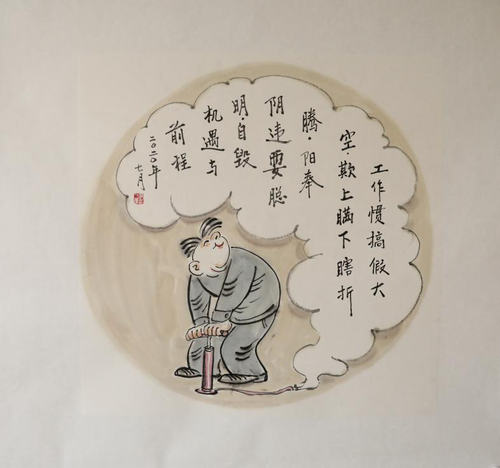 工作惯搞假大
空·欺上瞒下瞎折
腾·阳奉
阴违耍聪
明·自毁
机遇与
前程
二〇二〇年
七月